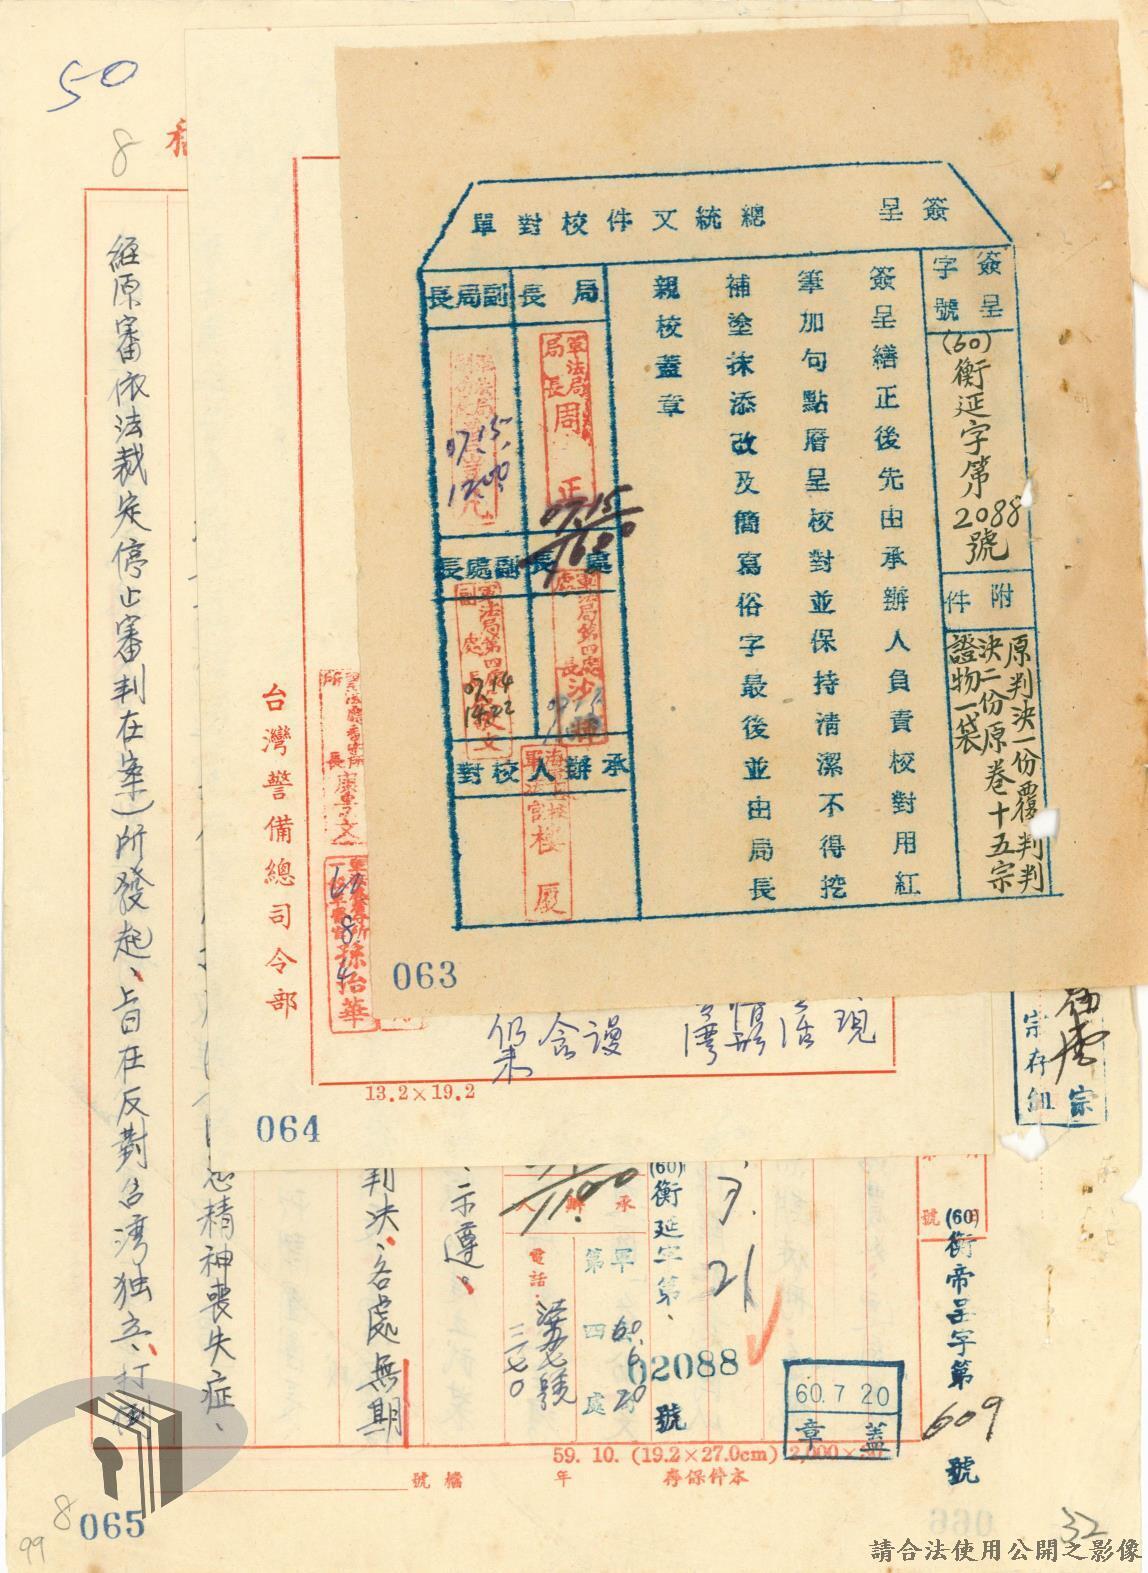 50
8
簽呈
總統文件校對單
簽呈字號
(60)衡延字第2088號
附件
原判決一份覆判判
決二份原卷十五宗
證物一袋
簽呈繕正後先由承辦人負責校對用紅
筆加句點層呈校對並保持清潔不得挖
補塗抹添改及簡寫俗字最後並由局長
親校蓋章
局長
副局長
軍法局局長周正
07.15
1600
07.15.
1200
處長
副處長
軍法局第四處處長沙
07.14
1422
承辦人校對
軍法官樓厦
063
現
謾
含
仍未
13.2×19.2
台灣警備總司令部
孫治華
064
宗存組
宗
(60)衡帝呈字第609號
(60)衡延字第、
02088
號
7.
21
60.7 20
蓋章
承辦人
1100
第四處
60.6.20
電話
二二七〇
示遵。
判決、各處無期
精神喪失症、
經原審依法裁定停止審判在案)所發起、旨在反對台灣独立、打倒
59.10. (19.2×27.0cm) 2,000×50
年
本件保存
檔號
8
065
99
066
32
請合法使用公開之影像